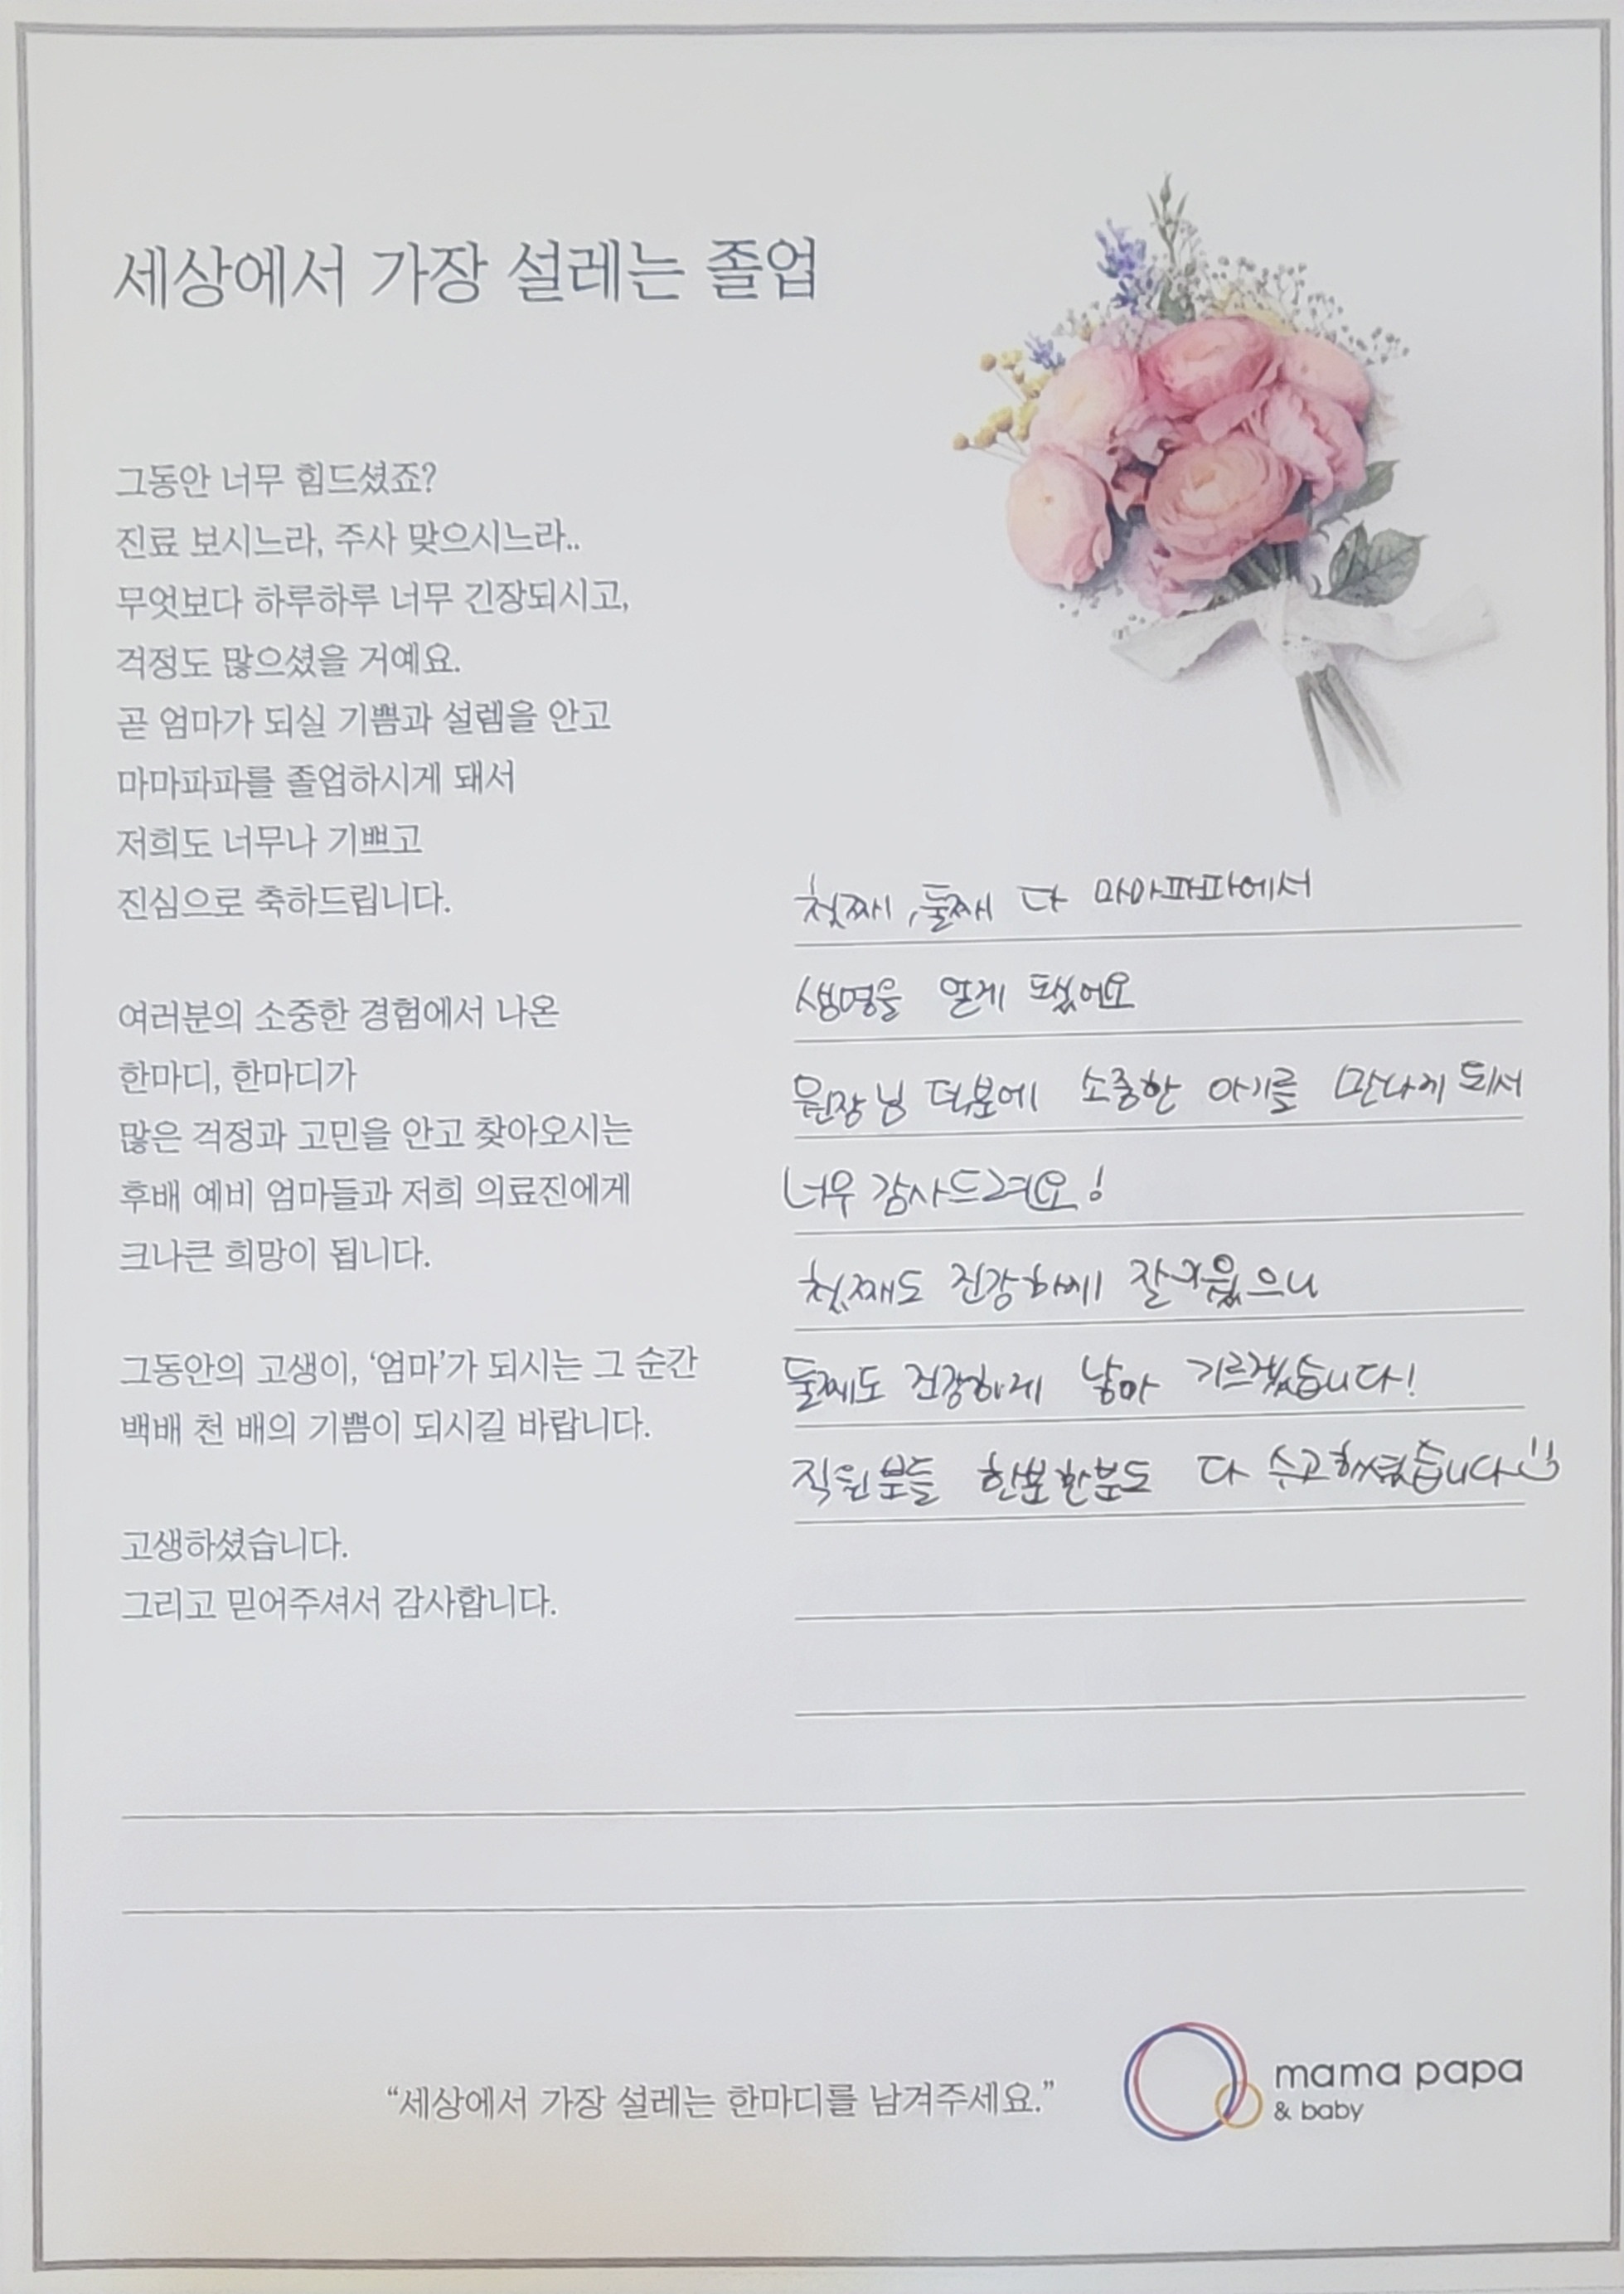 세상에서 가장 설레는 졸업
그동안 너무 힘드셨죠?
진료 보시느라, 주사 맞으시느라..
무엇보다 하루하루 너무 긴장되시고,
걱정도 많으셨을 거예요.
곧 엄마가 되실 기쁨과 설렘을 안고
마마파파를 졸업하시게 돼서
저희도 너무나 기쁘고
진심으로 축하드립니다.
여러분의 소중한 경험에서 나온
한마디, 한마디가
많은 걱정과 고민을 안고 찾아오시는
후배 예비 엄마들과 저희 의료진에게
크나큰 희망이 됩니다.
그동안의 고생이, ‘엄마’가 되시는 그 순간
백배 천 배의 기쁨이 되시길 바랍니다.
고생하셨습니다.
그리고 믿어주셔서 감사합니다.
첫째, 둘째 다 마마파파에서
생명을 얻게 됐어요
원장님 덕분에 소중한 아기를 만나게 되서
너무 감사드려요!
첫째도 건강하게 잘키웠으니
둘째도 건강하게 낳아 기르겠습니다!
직원분들 한분한분도 다 수고하셨습니다
“세상에서 가장 설레는 한마디를 남겨주세요.”
mama papa
& baby